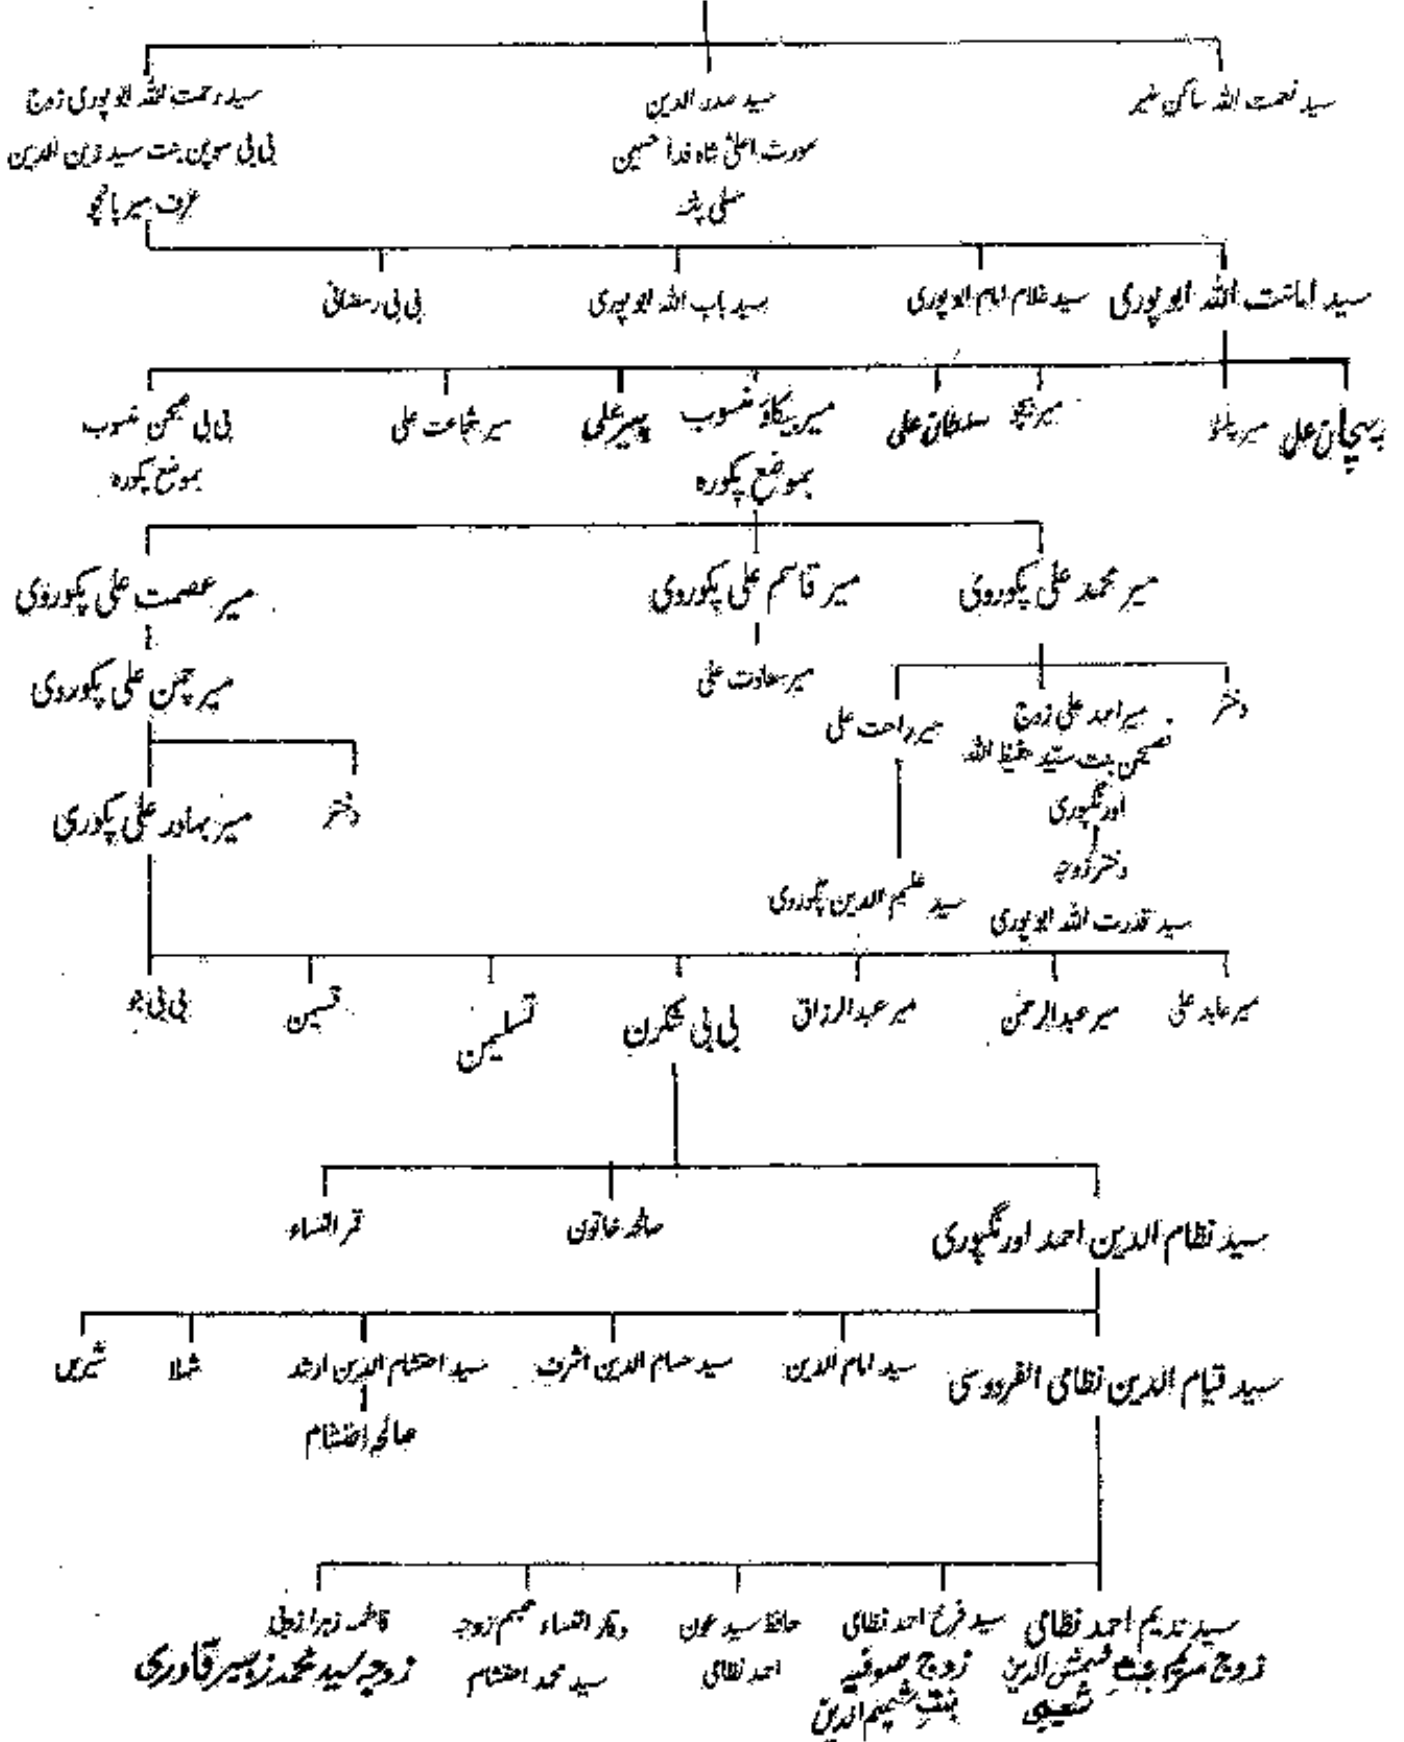 سید نعمت اللہ ساکن منیر
سید صدر الدین
مورث اعلیٰ شاہ فدا حسین
پٹنہ
سید رحمت اللہ ابوپوری زوج
بی بی سوبن بنت سید زین الدین
عرف میر پانچو
سید امانت اللہ ابوپوری
سید غلام امام ابوپوری
سید باب اللہ ابوپوری
بی بی رمضانی
پہچان علی
میر
میر بیچو
سلطان علی
میر بیکاؤ منسوب
بموضع پکورہ
پیر علی
میر شجاعت علی
بی بی منسوب
بموضع پکورہ
میر محمد علی پکوروی
میر قاسم علی پکوروی
میر عصمت علی پکوروی
دختر
میر احمد علی زوج
نصیحن بنت سید حفیظ اللہ
اورنگپوری
دختر زوجہ
سید قدرت اللہ ابوپوری
میر راحت علی
سید علیم الدین پکوروی
میر سعادت علی
میر چمن علی پکوروی
دختر
میر بہادر علی پکوری
میر عابد علی
میر عبدالرحمٰن
میر عبدالرزاق
بی بی شکرن
تسلیمن
تسین
بی بی جو
سید نظام الدین احمد اورنگپوری
صالحہ خاتون
قمر النساء
سید قیام الدین نظامی الفردوسی
سید امام الدین
سید حسام الدین اشرف
سید احتشام الدین ارشد
صالحہ احتشام
شہلا
شیریں
سید ندیم احمد نظامی
زوج مریم بنت شمس الدین
شعیبی
سید فرخ احمد نظامی
زوج صوفیہ
بنت شمیم الدین
حافظ سید عون
احمد نظامی
وقار النساء زوجہ
سید محمد احتشام
فاطمہ زہرا
زوجہ سید محمد زبیر قادری